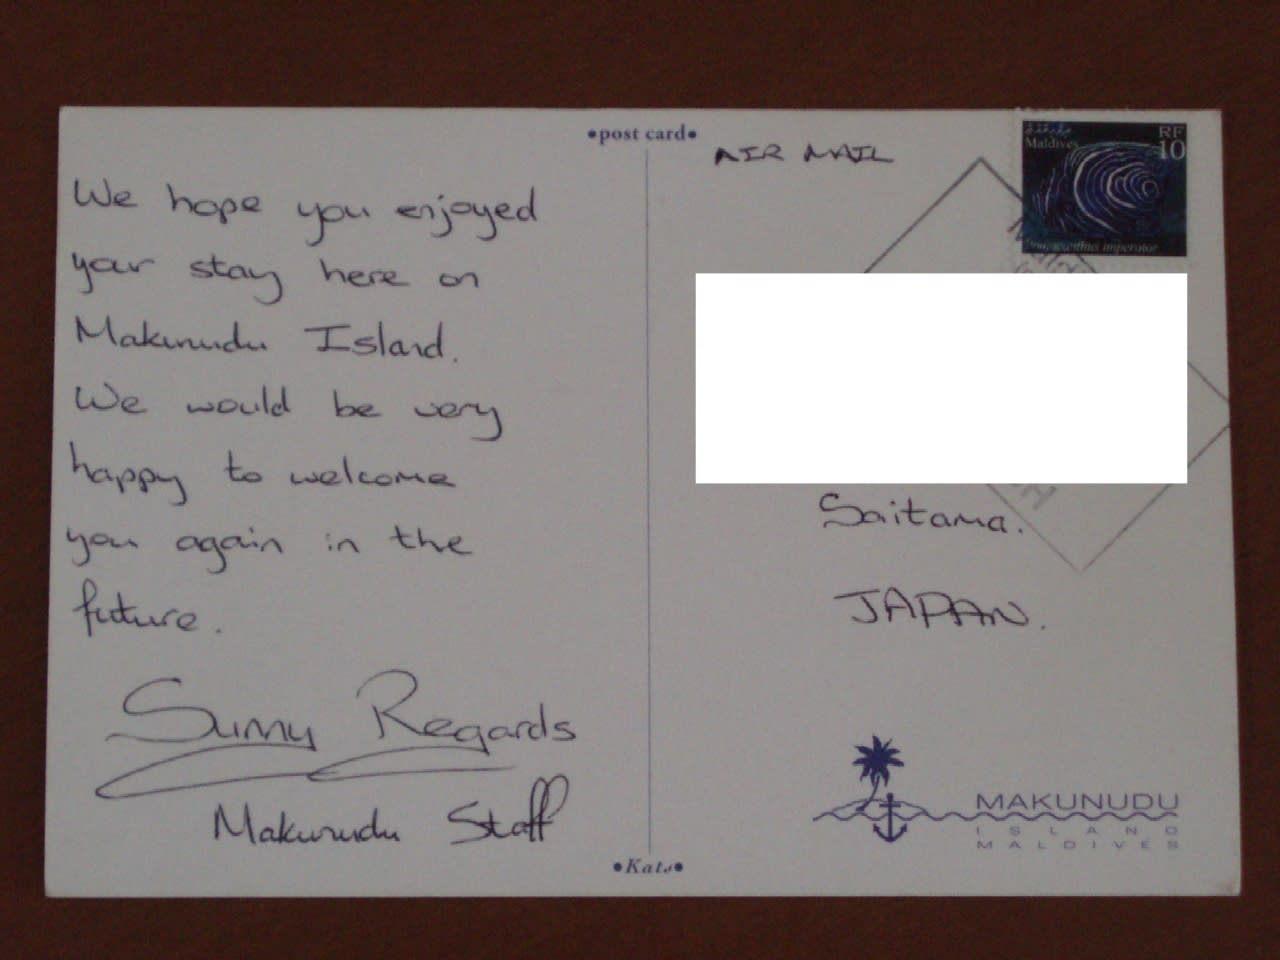 •post card•
We hope you enjoyed
your stay here on
Makunudu Island.
We would be very
happy to welcome
you again in the
future.
Sunny Regards
Makunudu Staff
•Kats•
AIR MAIL
Maldives
RF
10
imperator
Saitama.
JAPAN.
MAKUNUDU
ISLAND
MALDIVES